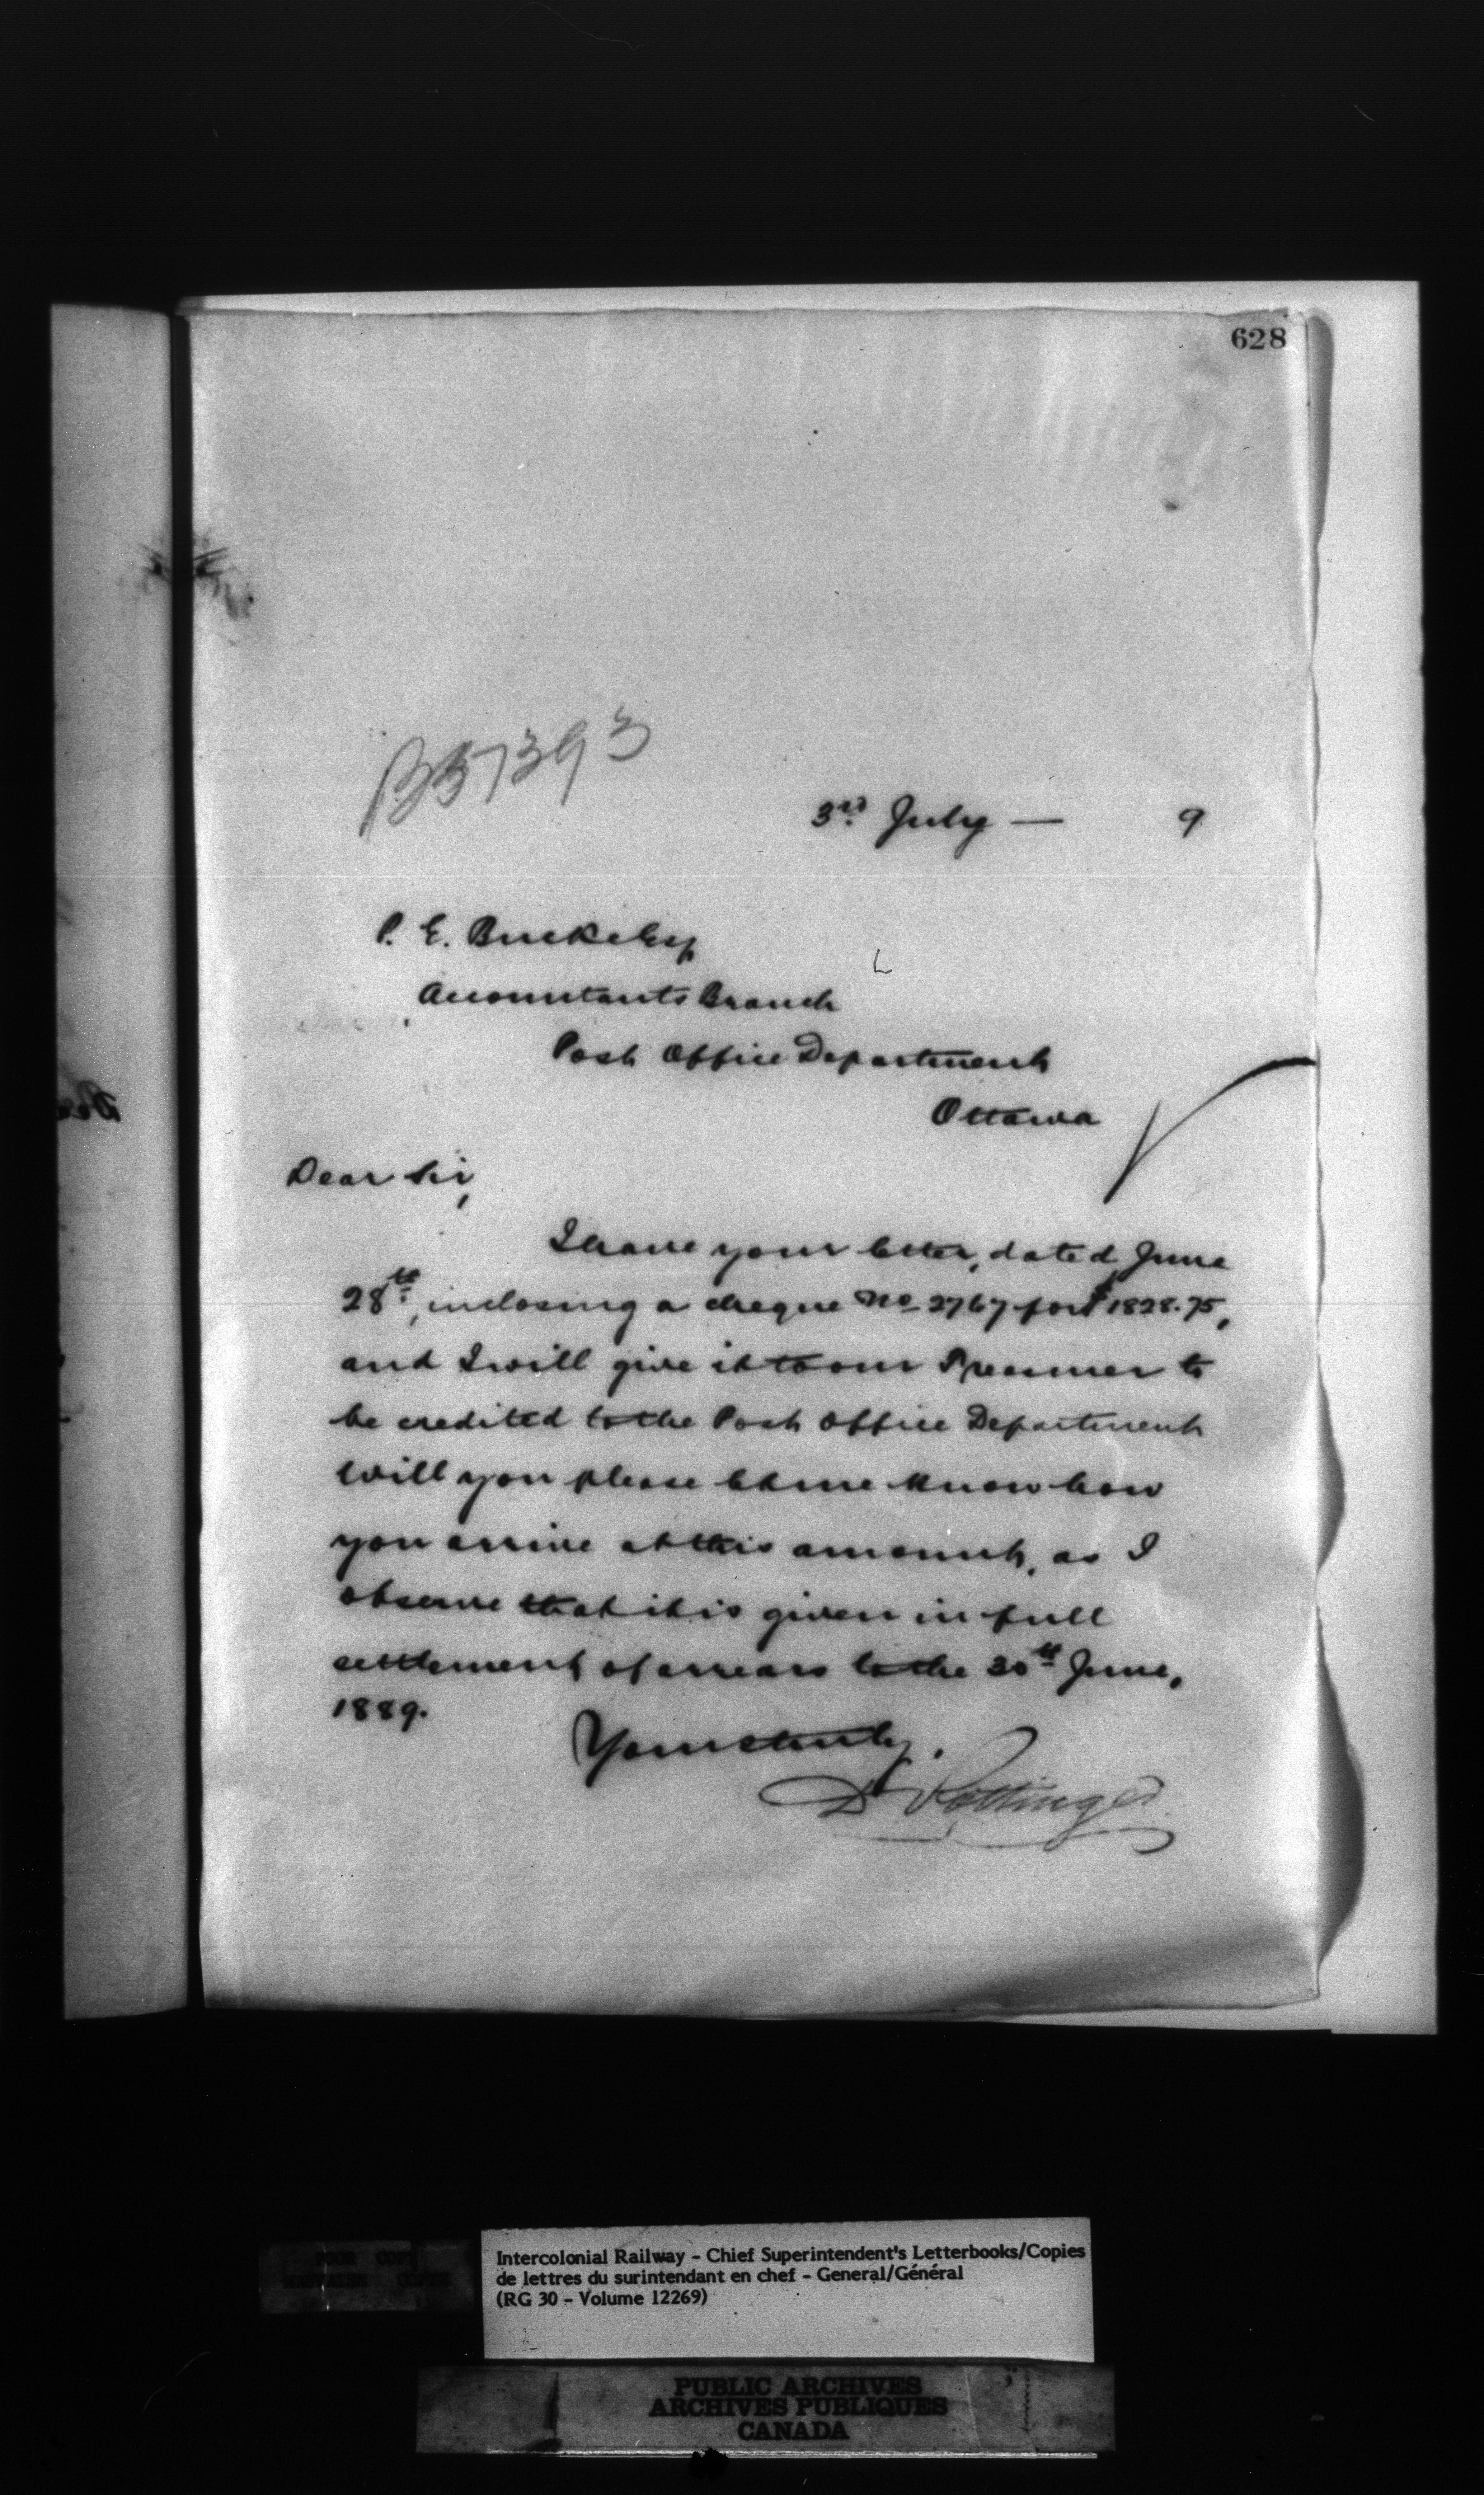 628
B57393
3rd July — 9
P. E. Bucke Esq
Accountants Branch
Post Office Department
Ottawa
Dear Sir,
I have your letter, dated June
28th, inclosing a cheque No 2767 for $1828.75,
and I will give it to our Treasurer to
be credited to the Post Office Department
Will you please let me know how
you arrive at this amount, as I
observe that it is given in full
settlement of arrears to the 30th June,
1889.
Yours truly,
D Pottinger
Intercolonial Railway - Chief Superintendent's Letterbooks/Copies
de lettres du surintendant en chef - General/Général
(RG 30 - Volume 12269)
POOR COPY
MAUVAISE COPIE
PUBLIC ARCHIVES
ARCHIVES PUBLIQUES
CANADA